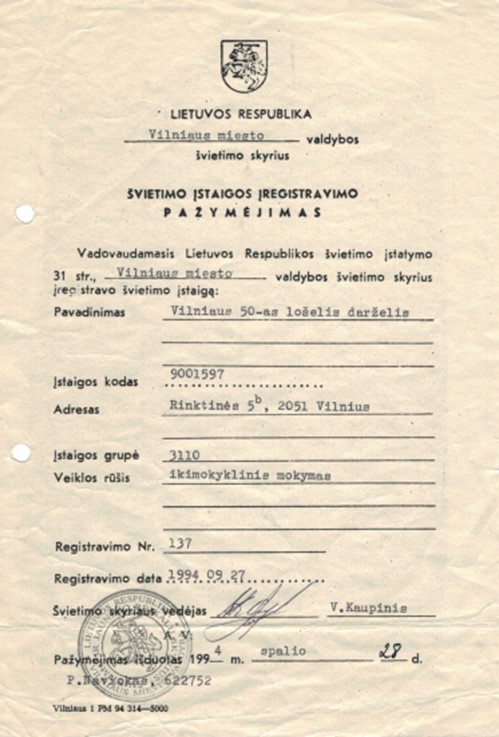 LIETUVOS RESPUBLIKA
Vilniaus miesto valdybos
švietimo skyrius
ŠVIETIMO ĮSTAIGOS ĮREGISTRAVIMO
PAŽYMĖJIMAS
Vadovaudamasis Lietuvos Respublikos švietimo įstatymo
31 str., Vilniaus miesto valdybos švietimo skyrius
įregistravo švietimo įstaigą:
Pavadinimas Vilniaus 50-as lošelis darželis
Įstaigos kodas 9001597
Adresas Rinktinės 5b, 2051 Vilnius
Įstaigos grupė 3110
Veiklos rūšis ikimokyklinis mokymas
Registravimo Nr. 137
Registravimo data 1994 09 27
Švietimo skyriaus vedėjas V.Kaupinis
A. V.
Pažymėjimas išduotas 1994 m. spalio 28 d.
P.Navickas, 622752
Vilniaus 1 PM 94 314—5000